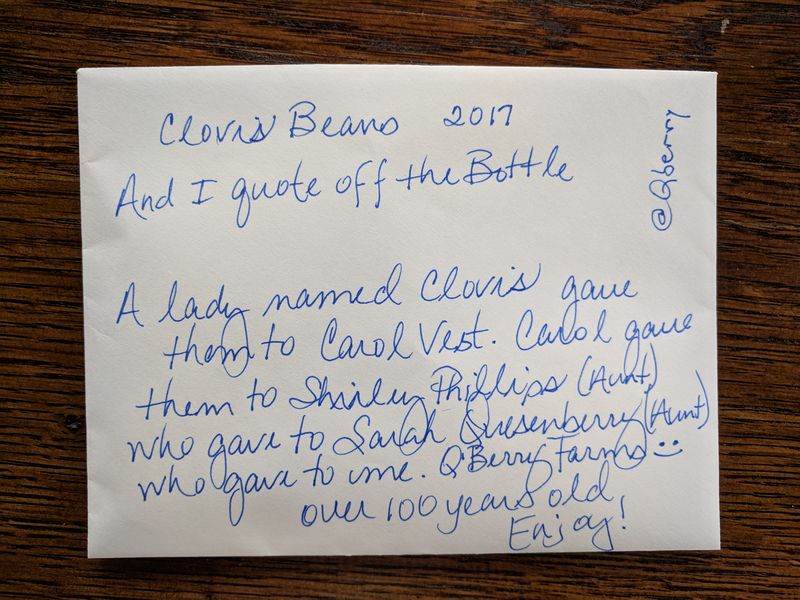 Clovis Beans 2017
@Qberry
And I quote off the Bottle
A lady named Clovis gave
them to Carol Vest. Carol gave
them to Shirley Phillips (Aunt)
who gave to Sarah Quesenberry (Aunt)
who gave to me. QBerry Farms :)
over 100 years old
Enjoy!